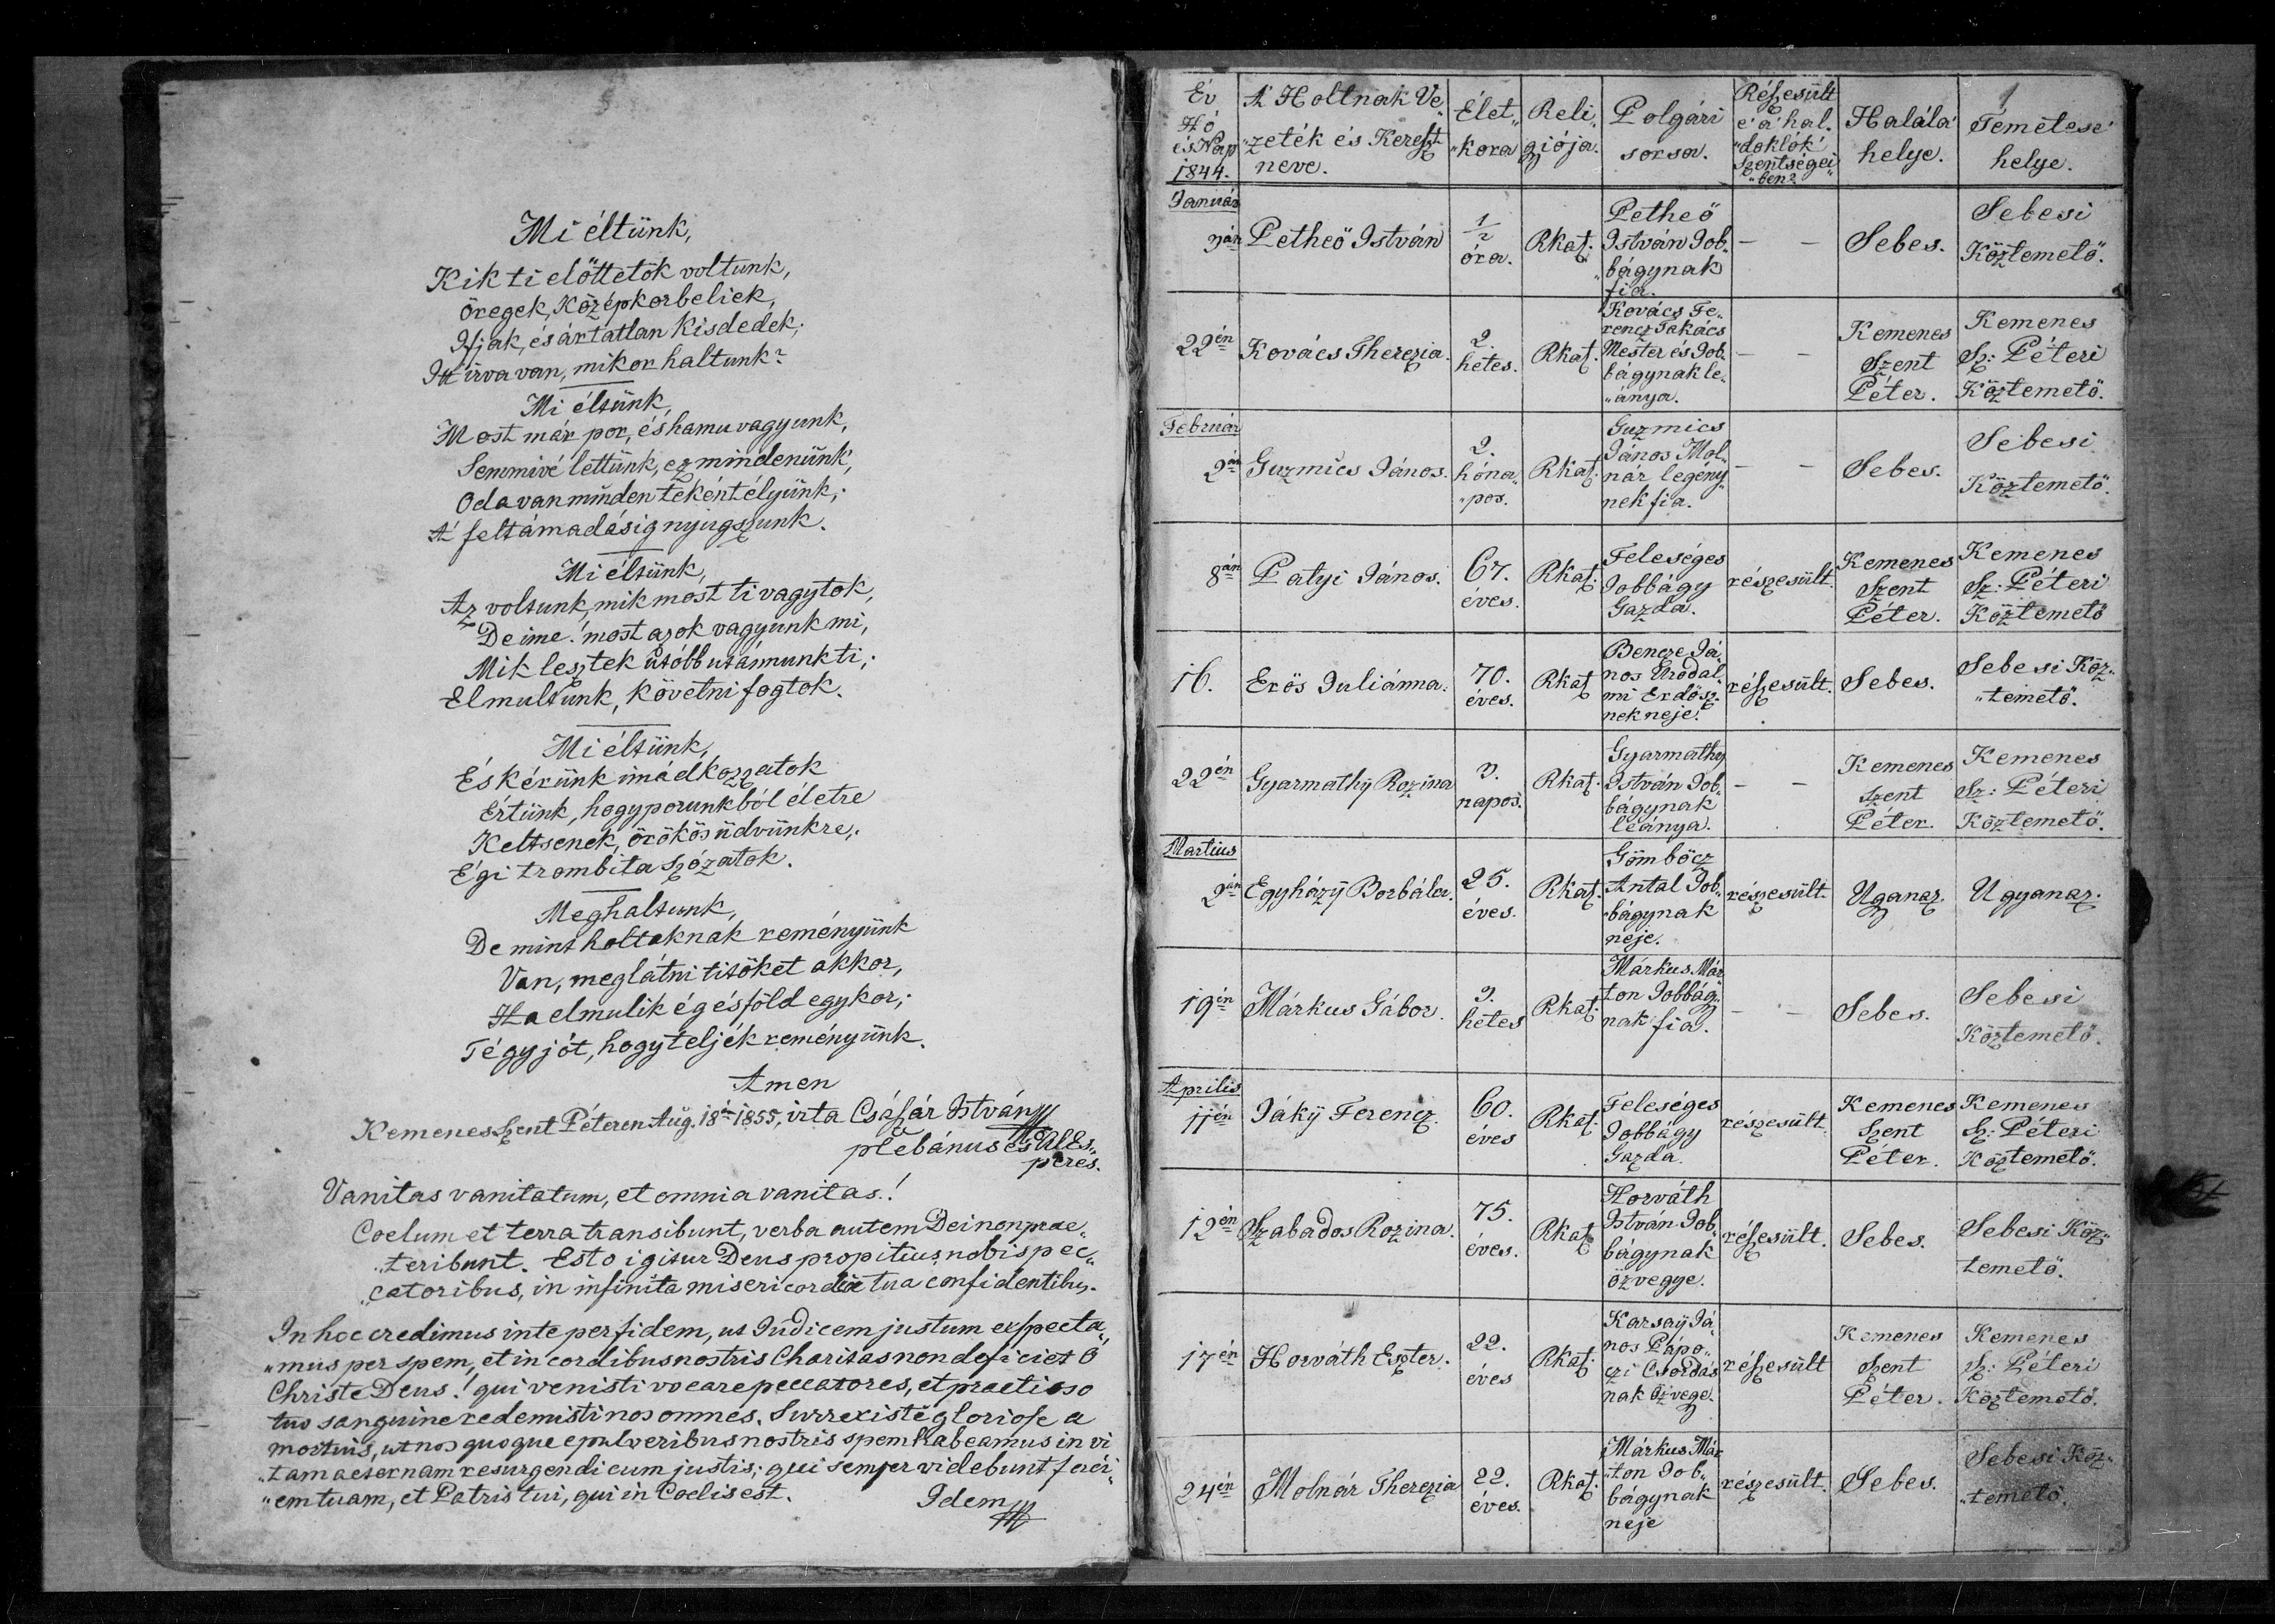 Mi éltünk,
Kik ti előttetök voltunk,
öregek, Középkorbeliek,
Ifjak, és ártatlan kisdedek;
Itt irva van, mikor haltunk?
Mi éltünk,
Most már por, és hamu vagyunk,
Semmivé lettünk, ez mindenünk,
Oda van minden tekéntélyünk;
A' feltámadásig nyugszunk.
Mi éltünk,
Az voltunk, mik most ti vagytok,
De ime! most azok vagyunk mi,
Mik lesztek utóbb utánnunk ti;
Elmultunk, követni fogtok.
Mi éltünk,
És kérünk imádkozzatok
Értünk, hogy porunkból életre
Keltsenek, örökös üdvünkre,
Égi trombita szózatok.
Meghaltunk,
De mint holtaknak reményünk
Van, meglátni titöket akkor,
Ha elmulik ég és föld egykor;
Tégy jót, hogy teljék reményünk.
Amen
Kemenesszent Péteren Aug. 18án 1855, irta Császár István
plébánus és Al Es„
peres.
Vanitas vanitatum, et omnia vanitas!
Coelum et terra transibunt, verba autem Dei non prae„
„teribunt. Esto igitur Deus propitius nobis pec„
„catoribus, in infinita misericordia tua confidentibus.
In hoc credimus in te per fidem, ut Judicem justum exspecta„
„mus per spem, et in cordibus nostris Charitas non deficiet ó
Christe Deus! qui venisti vocare peccatores, et praetioso
tuo sanguine redemisti nos omnes. Surrexisti gloriose a
mortuis, ut nos quoque e pulveribus nostris spem habeamus in vi„
„tam aeternam resurgendi cum justis; qui semper videbunt faci„
„em tuam, et Patris tui, qui in Coelis est.
Idem
1
Év Hó és Nap 1844. A' Holtnak Ve„ „zeték és Kereszt neve. Élet„ „kora Reli„ giója. Polgári sorsa. Részesült é a' hal„ „doklók' Szentségei„ „ben? Halála' helye. Temetése' helye.
Január
3án Petheő István 1/2 óra. Rkat. Petheő István Job„ „bágynak fia. — — Sebes. Sebesi Köztemető.
22én Kovács Therezia. 2. hetes. Rkat. Kovács Fe„ rencz Takács Mester és Job„ bágynak le„ „ánya. — — Kemenes Szent Péter. Kemenes Sz: Péteri Köztemető.
Február
2án Guzmics János. 2. hóna„ „pos. Rkat. Guzmics János Mol„ nár legény„ nek fia. — — Sebes. Sebesi Köztemető.
8án Patyi János. 67. éves. Rkat. Feleséges Jobbágy Gazda. részesült. Kemenes Szent Péter. Kemenes Sz: Péteri Köztemető
16. Erős Juliánna. 70. éves. Rkat Bencze Já„ nos Urodal„ mi Erdősz„ nek neje. részesült. Sebes. Sebesi Köz„ „temető.
22én Gyarmathÿ Rozina 3. napos. Rkat. Gyarmathy István Job„ bágynak leánya. — — Kemenes Szent Péter. Kemenes Sz: Péteri Köztemető.
Martius
2án Egyházÿ Borbála. 25. éves. Rkat. Gömböcz Antal Job„ „bágynak neje. részesült. Uganaz. Ugyanaz.
19én Márkus Gábor. 3. hetes Rkat. Márkus Már ton Jobbág„ nak fia. — — Sebes. Sebesi Köztemető.
Aprilis
11én Jákÿ Ferencz. 60. éves Rkat. Feleséges Jobbágy Gazda. részesült. Kemenes Szent Péter. Kemenes Sz: Péteri Köztemető.
12én Szabados Rozina. 75. éves. Rkat Horváth István Job„ bágynak özvegye. részesült. Sebes. Sebesi Köz„ temető.
17én Horváth Eszter. 22. éves Rkat. Karsaÿ Já„ nos Pápo„ czi Csordás nak Özvege. részesült Kemenes Szent Péter. Kemenes Sz: Péteri Köztemető.
24én Molnár Therezia 22. éves. Rkat. Márkus Már „ton Job„ bágynak neje részesült. Sebes. Sebesi Köz„ „temető.